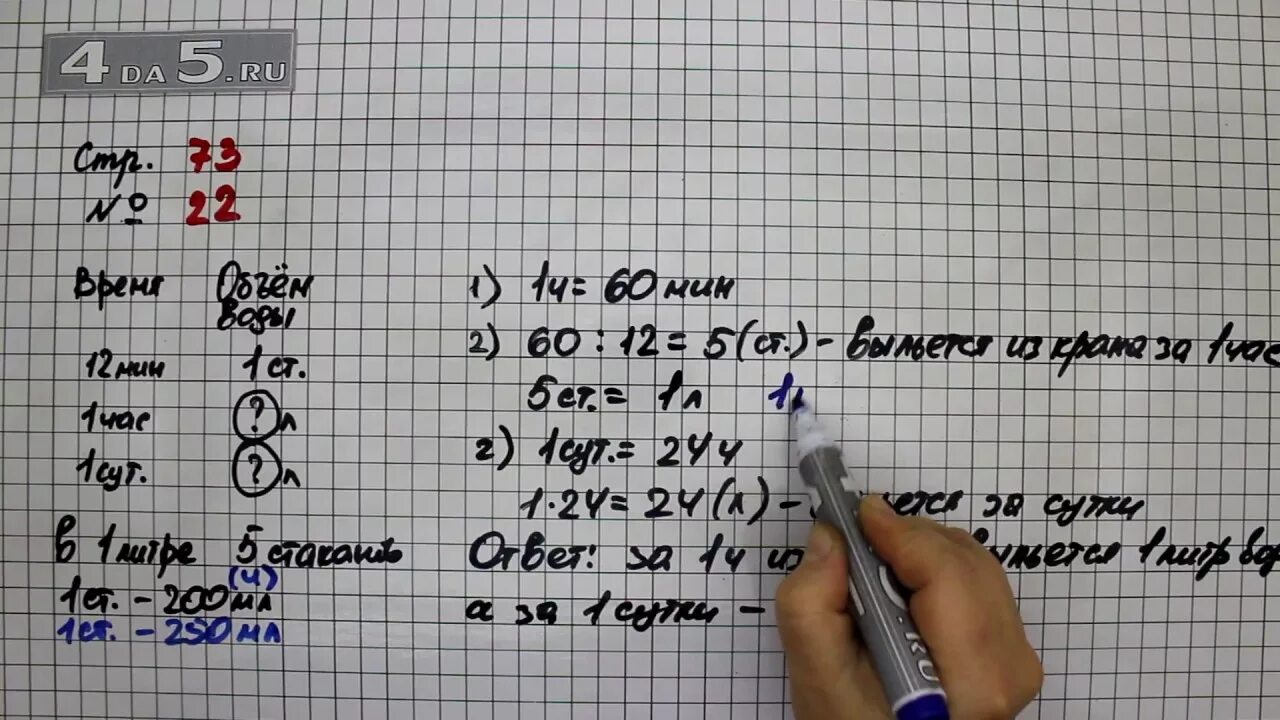 4DA5.RU
Стр. 73
№ 22
Время Объём
воды
12мин 1 ст.
1час ? л
1сут. ? л
в 1 литре 5 стаканов
(4)
1 ст. - 200 мл
1 ст. - 250 мл
1) 1ч = 60 мин
2) 60 : 12 = 5 (ст.) - выльется из крана за 1 час
5 ст. = 1 л 1
2) 1 сут. = 24 ч
1 · 24 = 24 (л) - за сутки
Ответ: за 1ч из выльется 1 литр
а за 1 сутки -
.RU